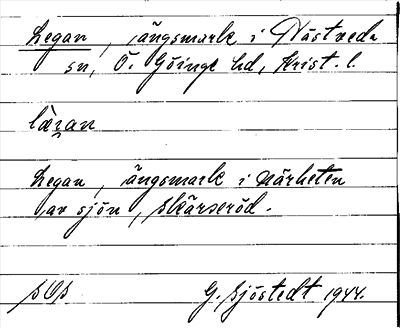 Legan, ängsmark i Hästveda
sn, Ö. Göinge hd, Krist. l.
læꞬan
Legan, ängsmark i närheten
av sjön, Skärseröd.
SOs G. Sjöstedt 1944.